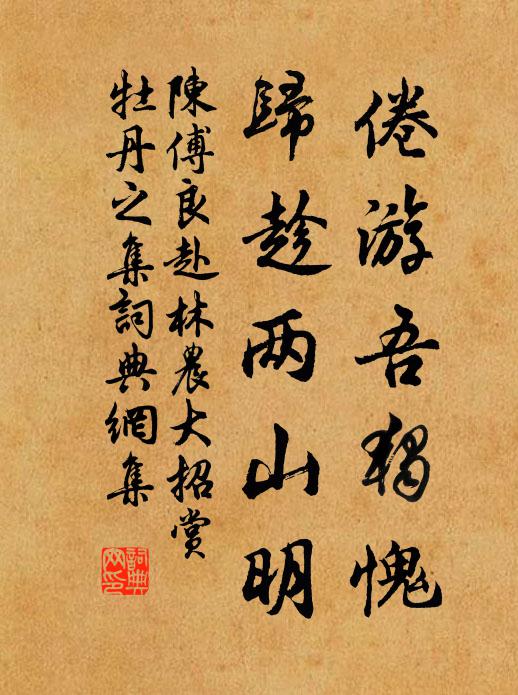 倦游吾独愧
歸趁两山明
陳傅良赴林農大招賞
牡丹之集詞典網集
詞典網印